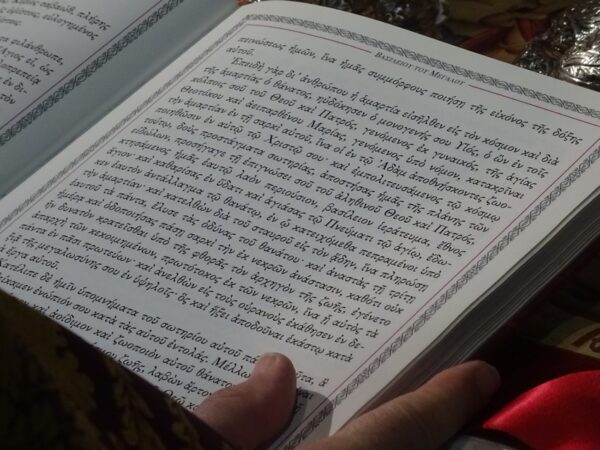 παιξιῶ, πλήστης
εὐλογημένος
φιλάνθρωπε,
Ἅγιος εἶ, ὡς
ΒΑΣΙΛΕΙΟΥ ΤΟΥ ΜΕΓΑΛΟΥ
πεινώσεως ἡμῶν, ἵνα ἡμᾶς συμμόρφους ποιήσῃ τῆς εἰκόνος τῆς δόξης
αὐτοῦ.
Ἐπειδὴ γὰρ δι' ἀνθρώπου ἡ ἁμαρτία εἰσῆλθεν εἰς τὸν κόσμον καὶ διὰ
τῆς ἁμαρτίας ὁ θάνατος, ηὐδόκησεν ὁ μονογενής σου Υἱός, ὁ ὢν ἐν τοῖς
κόλποις σοῦ τοῦ Θεοῦ καὶ Πατρός, γενόμενος ἐκ γυναικός, τῆς ἁγίας
Θεοτόκου καὶ ἀειπαρθένου Μαρίας, γενόμενος ὑπὸ νόμον, κατακρῖναι
τὴν ἁμαρτίαν ἐν τῇ σαρκὶ αὐτοῦ, ἵνα οἱ ἐν τῷ Ἀδὰμ ἀποθνήσκοντες ζωο-
ποιηθῶσιν ἐν αὐτῷ τῷ Χριστῷ σου· καὶ ἐμπολιτευσάμενος τῷ κόσμῳ
τούτῳ, δοὺς προστάγματα σωτηρίας, ἀποστήσας ἡμᾶς τῆς πλάνης τῶν
εἰδώλων, προσήγαγε τῇ ἐπιγνώσει σοῦ τοῦ ἀληθινοῦ Θεοῦ καὶ Πατρός,
κτησάμενος ἡμᾶς ἑαυτῷ λαὸν περιούσιον, βασίλειον ἱεράτευμα, ἔθνος
ἅγιον· καὶ καθαρίσας ἐν ὕδατι καὶ ἁγιάσας τῷ Πνεύματι τῷ ἁγίῳ, ἔδω-
κεν ἑαυτὸν ἀντάλλαγμα τῷ θανάτῳ, ἐν ᾧ κατειχόμεθα πεπραμένοι ὑπὸ
τὴν ἁμαρτίαν· καὶ κατελθὼν διὰ τοῦ σταυροῦ εἰς τὸν ᾅδην, ἵνα πληρώσῃ
ἑαυτοῦ τὰ πάντα, ἔλυσε τὰς ὀδύνας τοῦ θανάτου· καὶ ἀναστὰς τῇ τρίτῃ
ἡμέρᾳ καὶ ὁδοποιήσας πάσῃ σαρκὶ τὴν ἐκ νεκρῶν ἀνάστασιν, καθότι οὐκ
ἦν δυνατὸν κρατεῖσθαι ὑπὸ τῆς φθορᾶς τὸν ἀρχηγὸν τῆς ζωῆς, ἐγένετο
ἀπαρχὴ τῶν κεκοιμημένων, πρωτότοκος ἐκ τῶν νεκρῶν, ἵνα ᾖ αὐτὸς τὰ
πάντα ἐν πᾶσι πρωτεύων· καὶ ἀνελθὼν εἰς τοὺς οὐρανοὺς ἐκάθισεν ἐν δε-
ξιᾷ τῆς μεγαλωσύνης σου ἐν ὑψηλοῖς, ὃς καὶ ἥξει ἀποδοῦναι ἑκάστῳ κατὰ
ἔργα αὐτοῦ.
Κατέλιπε δὲ ἡμῖν ὑπομνήματα τοῦ σωτηρίου αὐτοῦ ταῦτα, ἃ
ἐνώπιόν σου κατὰ τὰς αὐτοῦ ἐντολάς. Μέλλων
καὶ ἀοίδιμον καὶ ζωοποιὸν αὐτοῦ θάνατον
ζωῆς, λαβὼν ἄρτον